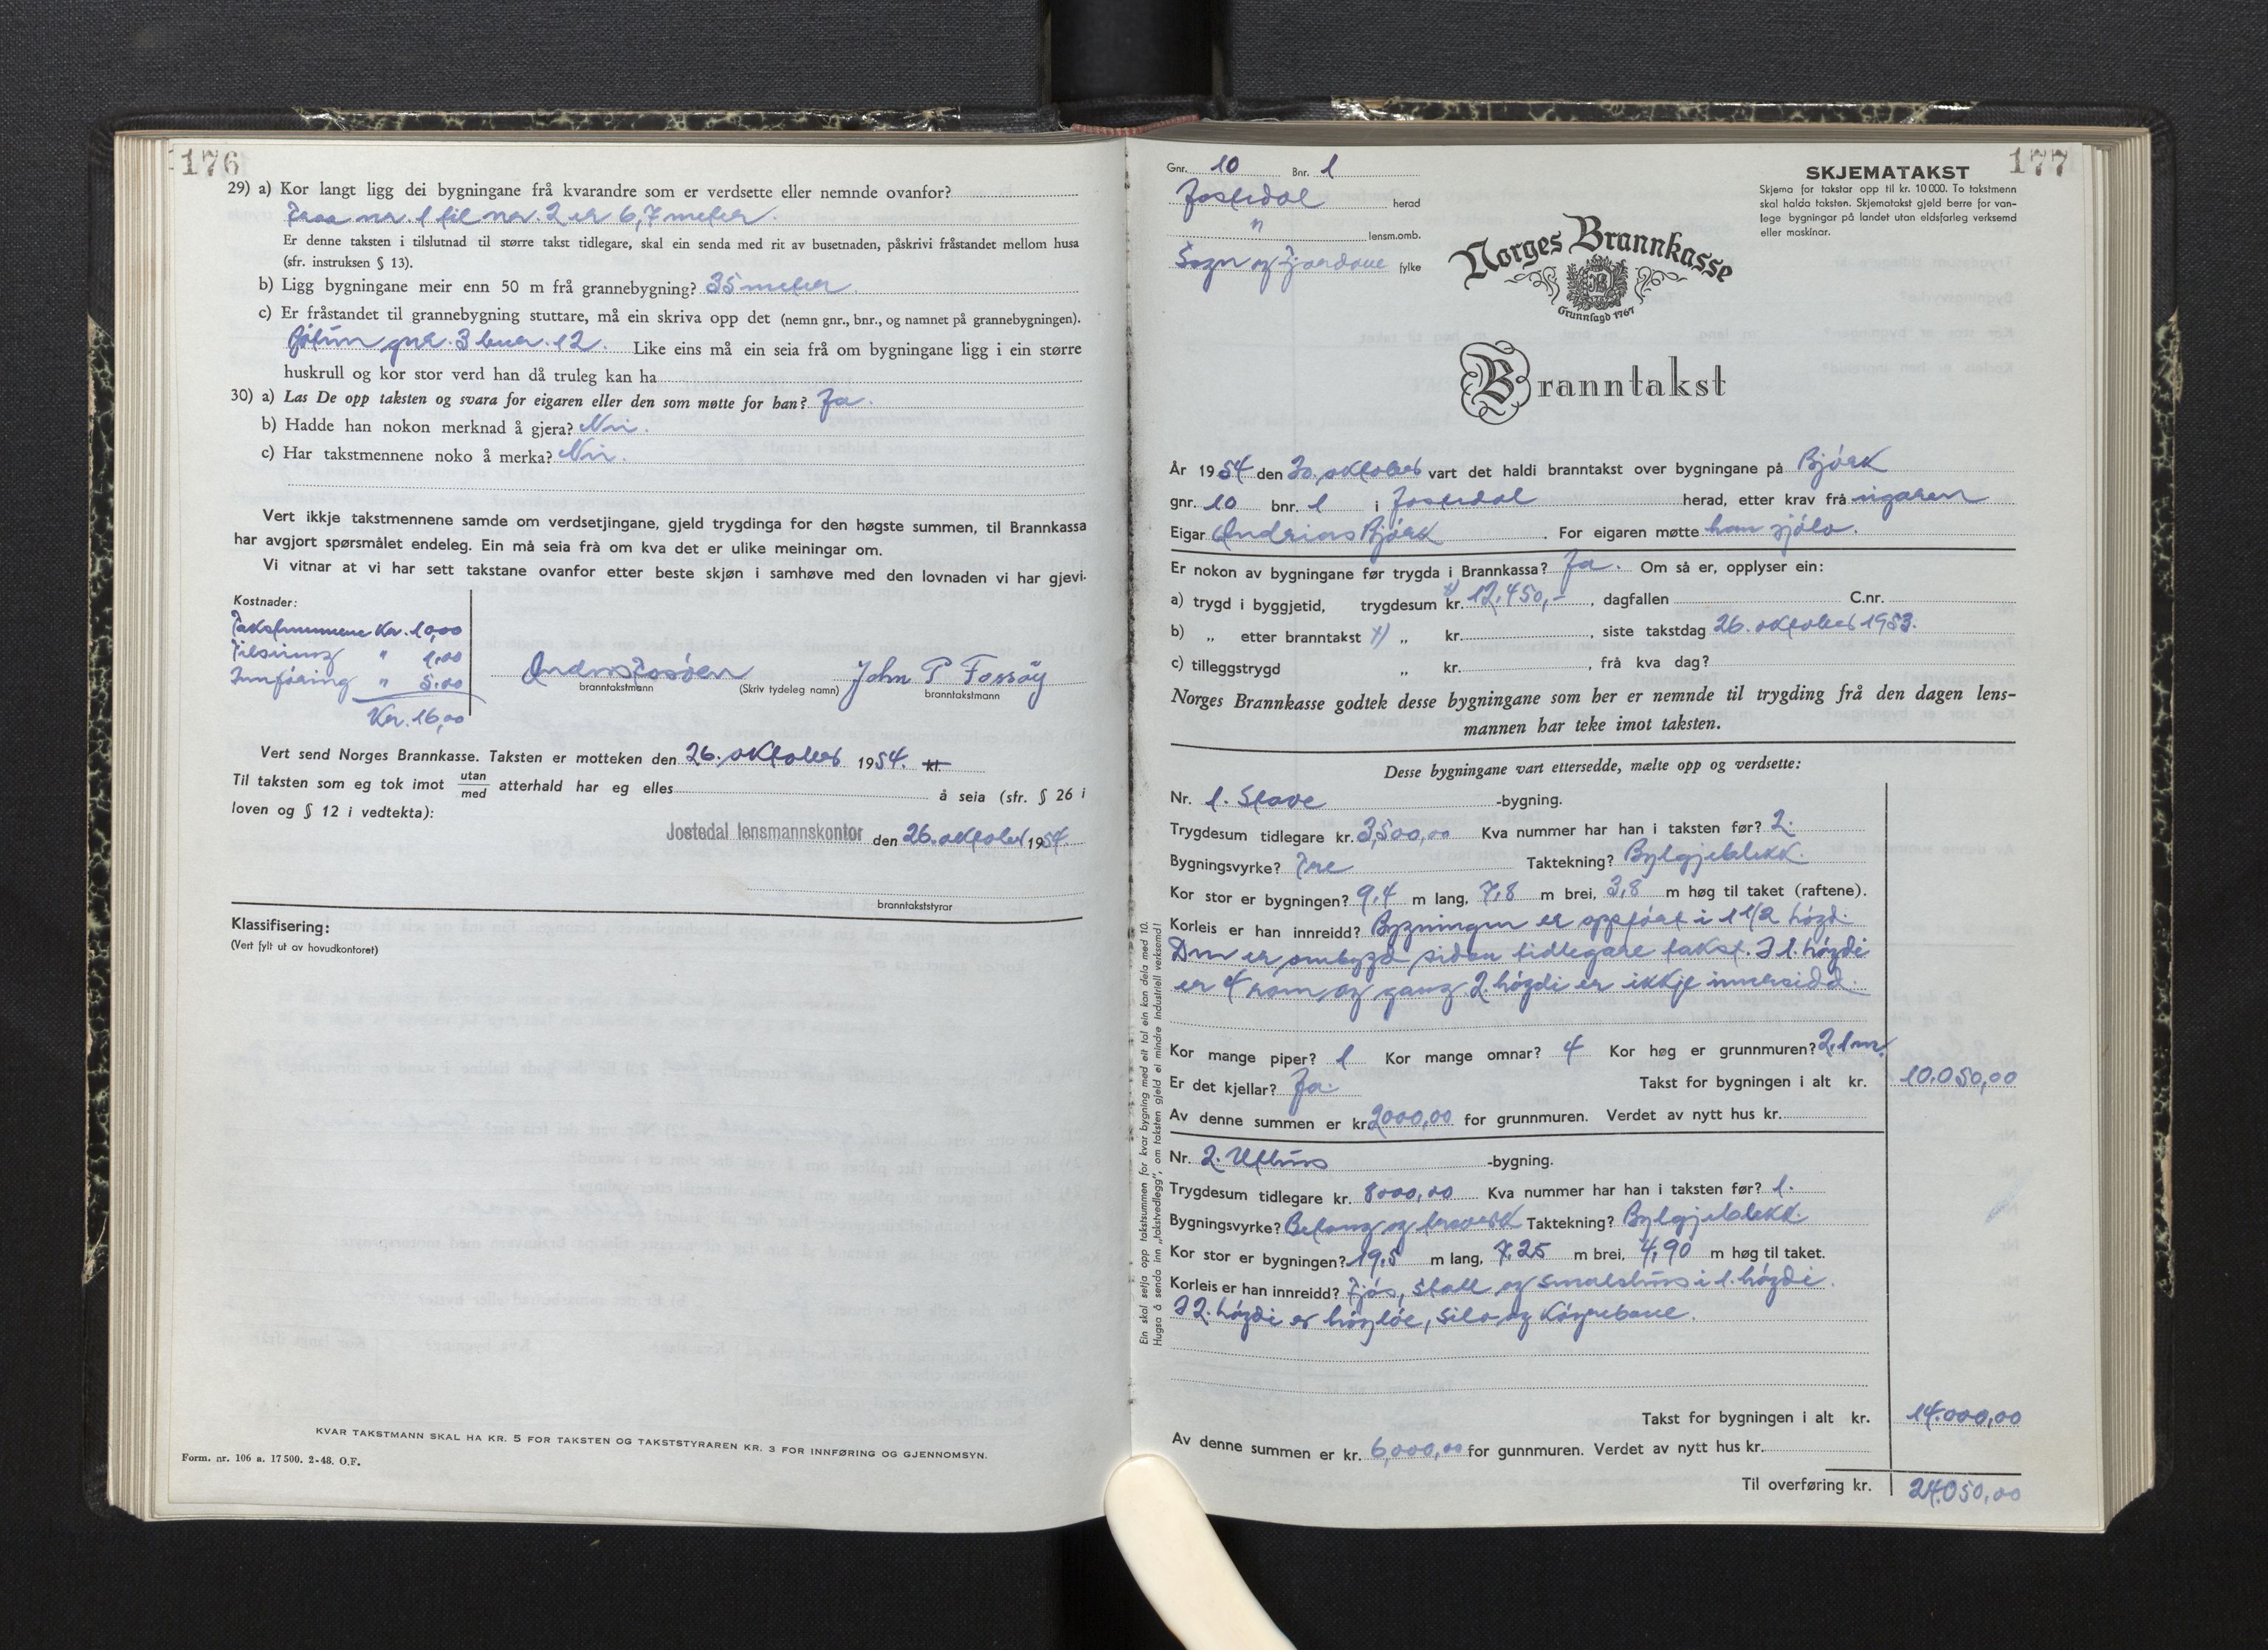 176
29) a) Kor langt ligg dei bygningane frå kvarandre som er verdsette eller nemnde ovanfor?
Fraa nr. 1 til nr. 2 er 6,7 meter.
Er denne taksten i tilslutnad til større takst tidlegare, skal ein senda med rit av busetnaden, påskrivi fråstandet mellom husa
(sfr. instruksen § 13).
b) Ligg bygningane meir enn 50 m frå grannebygning? 35 meter.
c) Er fråstandet til grannebygning stuttare, må ein skriva opp det (nemn gnr., bnr., og namnet på grannebygningen).
gnr. 3 bnr. 12. Like eins må ein seia frå om bygningane ligg i ein større
huskrull og kor stor verd han då truleg kan ha
30) a) Las De opp taksten og svara for eigaren eller den som møtte for han? Ja.
b) Hadde han nokon merknad å gjera? Nei.
c) Har takstmennene noko å merka? Nei.
Vert ikkje takstmennene samde om verdsetjingane, gjeld trygdinga for den høgste summen, til Brannkassa
har avgjort spørsmålet endeleg. Ein må seia frà om kva det er ulike meiningar om.
Vi vitnar at vi har sett takstane ovanfor etter beste skjøn i samhøve med den lovnaden vi har gjevi.
Kostnader:
Takstmennene Kr. 10,00
Tilsining " 1,00
Innføring " 5.00
Kr. 16,00
John P Fossøy
branntakstmann (Skriv tydeleg namn) branntakstmann
Vert send Norges Brannkasse. Taksten er motteken den 26. oktober 1954. kl.
Til taksten som eg tok imot utan/med atterhald har eg elles å seia (sfr. § 26 i
loven og § 12 i vedtekta):
Jostedal lensmannskontor den 26. oktober 1954.
branntakststyrar
Klassifisering:
(Vert fylt ut av hovudkontoret)
KVAR TAKSTMANN SKAL HA KR. 5 FOR TAKSTEN OG TAKSTSTYRAREN KR. 3 FOR INNFØRING OG GJENNOMSYN.
Form. nr. 106 a. 17 500. 2-48. O.F.
177
Gnr. 10 Bnr. 1
Jostedal herad
" lensm.omb.
Sogn og Fjordane fylke
SKJEMATAKST
Skjema for takstar opp til kr. 10 000. To takstmenn
skal halda taksten. Skjematakst gjeld berre for van-
lege bygningar på landet utan eldsfarleg verksemd
eller maskinar.
Norges Brannkasse
Grunnlagd 1767
Branntakst
År 1954 den 20. oktober vart det haldi branntakst over bygningane på Bjørk
gnr. 10 bnr. 1 i Jostedal herad, etter krav frå eigaren
Eigar Andrias Bjørk. For eigaren møtte han sjølv.
Er nokon av bygningane før trygda i Brannkassa? Ja. Om så er, opplyser ein:
a) trygd i byggjetid, trygdesum kr. x) 12.450,-, dagfallen C.nr.
b) „ etter branntakst x) „ kr. , siste takstdag 26. oktober 1953.
c) tilleggstrygd „ kr. , frå kva dag?
Norges Brannkasse godtek desse bygningane som her er nemnde til trygding frå den dagen lens-
mannen har teke imot taksten.
Desse bygningane vart ettersedde, mælte opp og verdsette:
Nr. 1. Stove -bygning.
Trygdesum tidlegare kr. 3,500,00 Kva nummer har han i taksten før? 2.
Bygningsvyrke? Tre Taktekning? Bylgjeblekk.
Kor stor er bygningen? 9,4 m lang, 7,8 m brei, 3,8 m høg til taket (raftene).
Korleis er han innreidd? Bygningen er oppført i 1 1/2 høgd.
Den er ombygd sidan tidlegare takst. I 1. høgdi
er 4 rom og gang 2. høgdi er ikkje innreidd.
Kor mange piper? 1 Kor mange omnar? 4 Kor høg er grunnmuren? 2,1 m.
Er det kjellar? Ja. Takst for bygningen i alt kr. 10.050,00
Av denne summen er kr. 2000,00 for grunnmuren. Verdet av nytt hus kr.
Nr. 2. Uthus -bygning.
Trygdesum tidlegare kr. 8000,00 Kva nummer har han i taksten før? 1.
Bygningsvyrke? Betong og treverk Taktekning? Bylgjeblekk.
Kor stor er bygningen? 19,5 m lang, 7,25 m brei, 4,90 m høg til taket.
Korleis er han innreidd? Fjøs, stall og smalehus i 1. høgdi.
I 2. høgdi er høyløe, silo og køyrebane.
Takst for bygningen i alt kr. 14.000,00
Av denne summen er kr. 6,000,00 for gunnmuren. Verdet av nytt hus kr.
Til overføring kr. 24.050,00
Ein skal setja opp takstsummen for kvar bygning med eit tal ein kan dela med 10.
Hugsa å senda inn „takstvedlegg", om taksten gjeld ei mindre industriell verksemd!